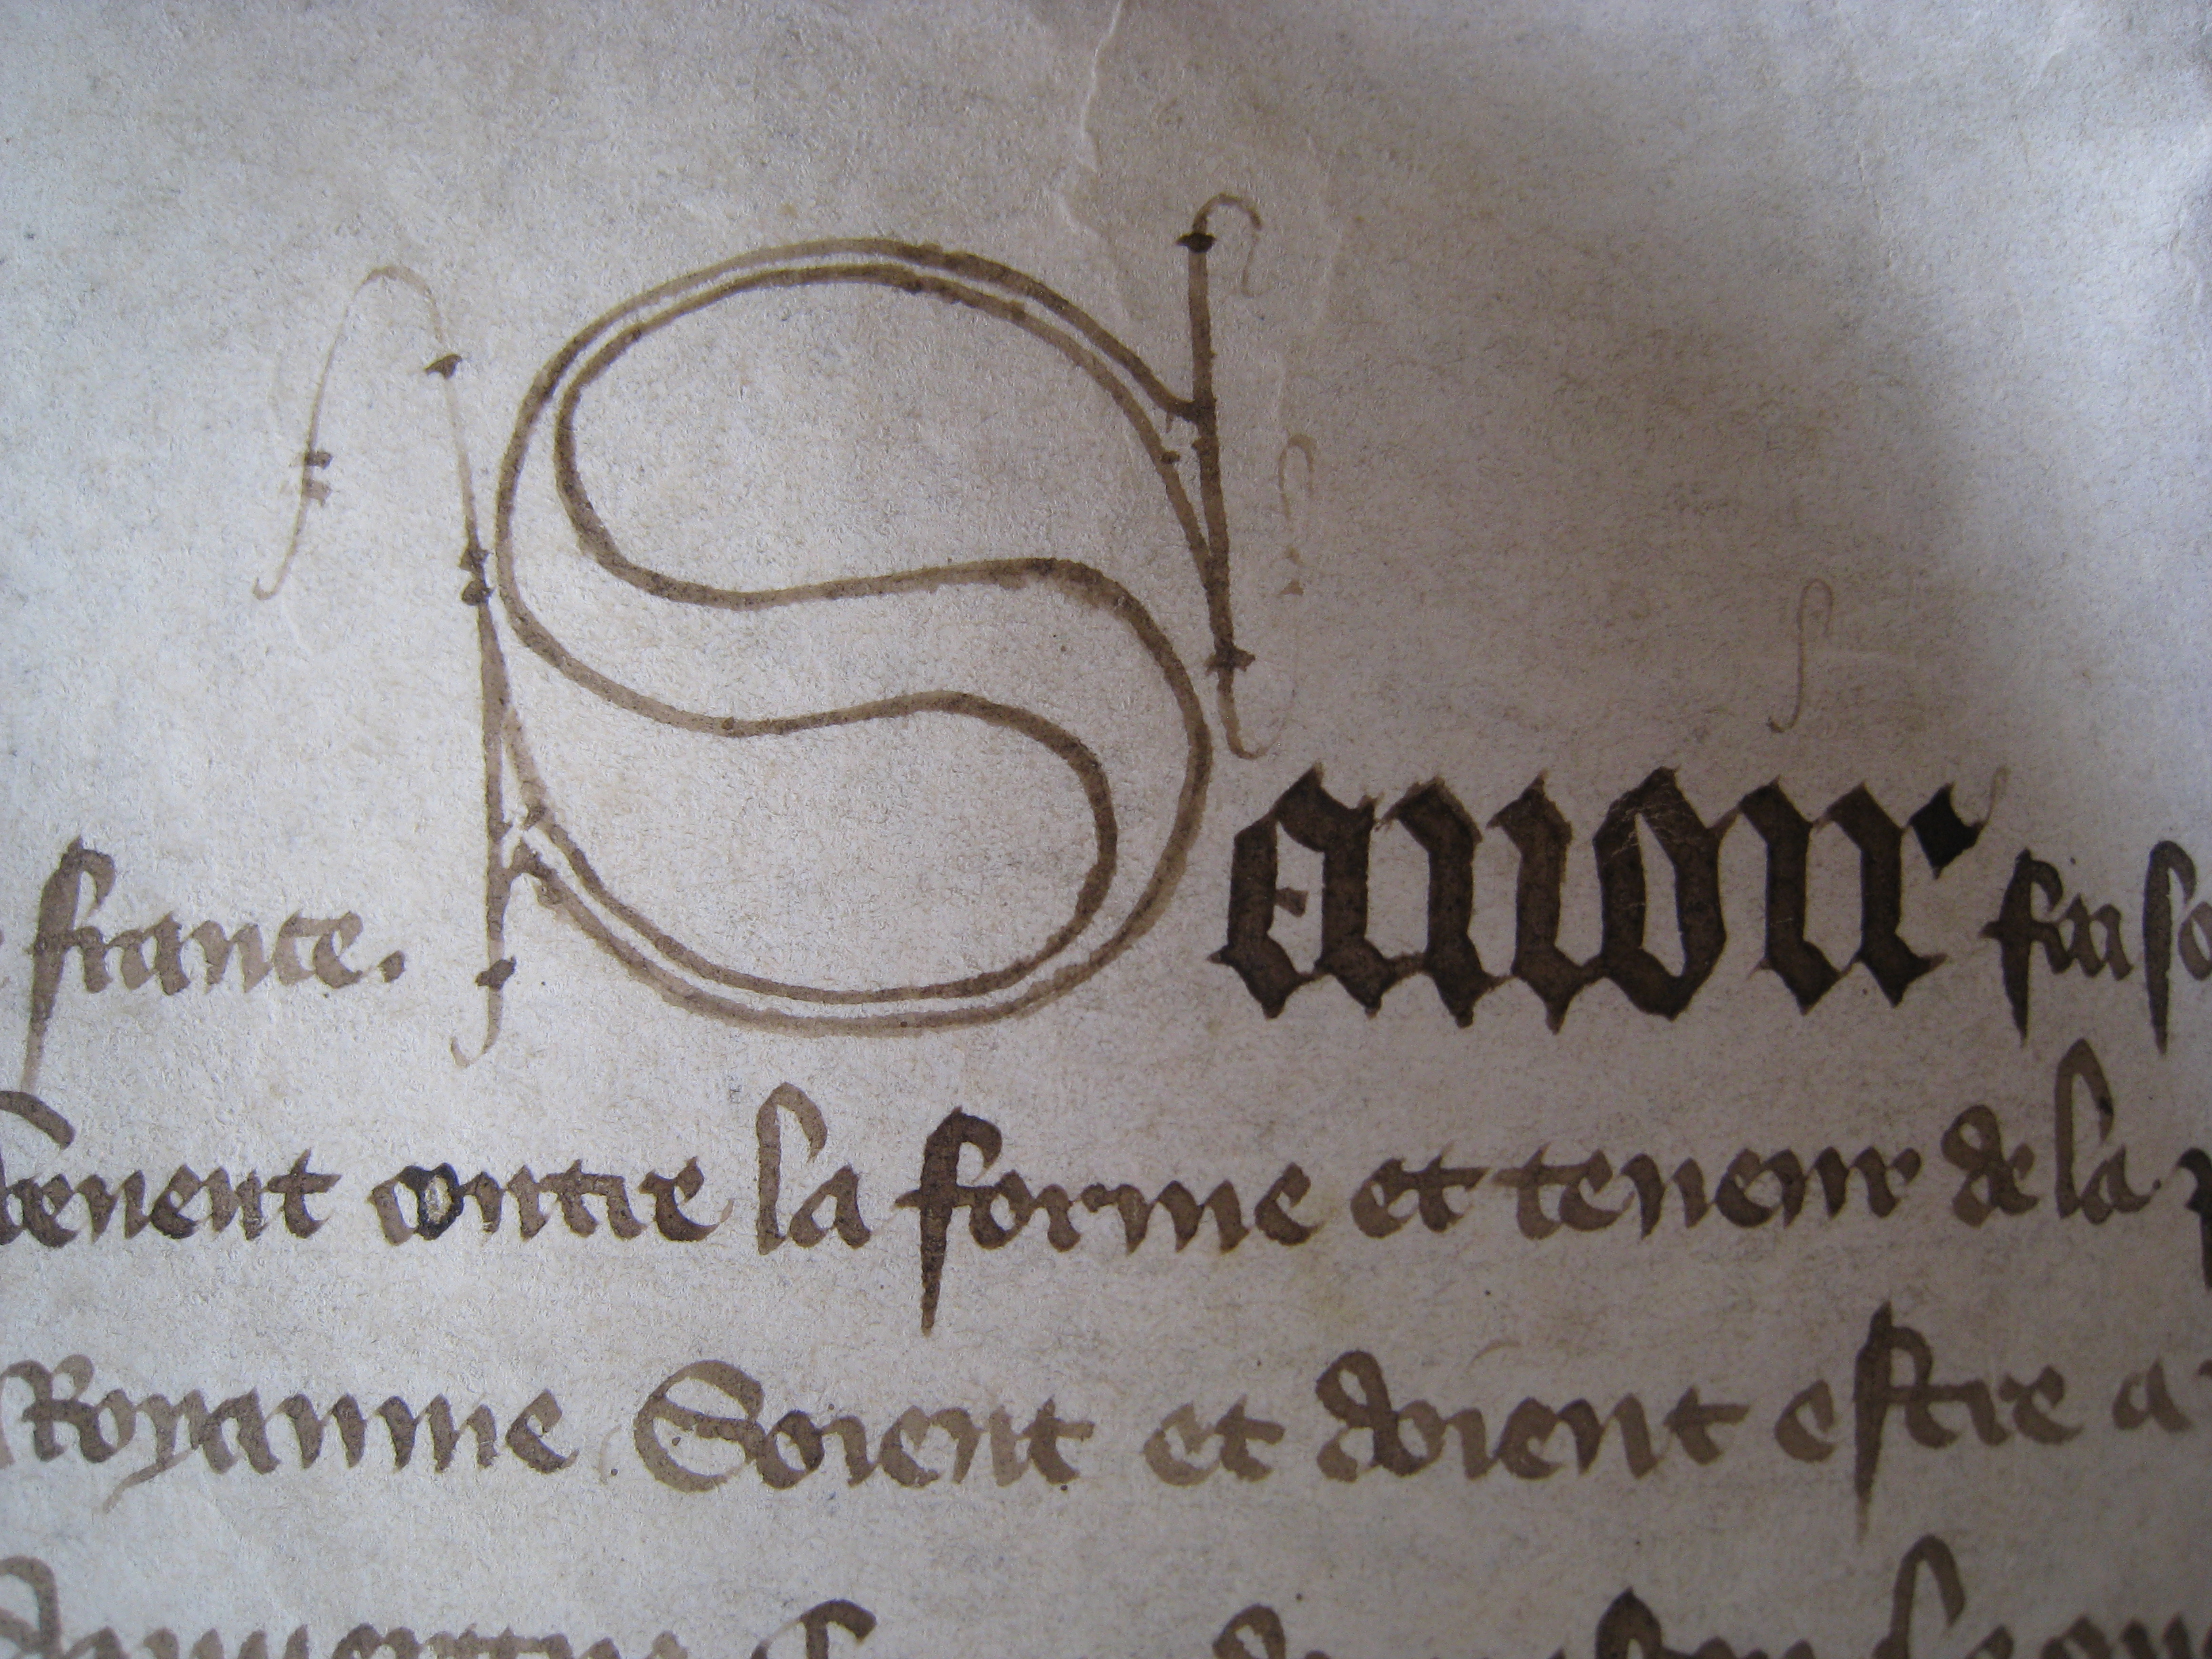 france. Sauoir faiso
contre la forme et teneur de la
Royaume Soient et doient estre a